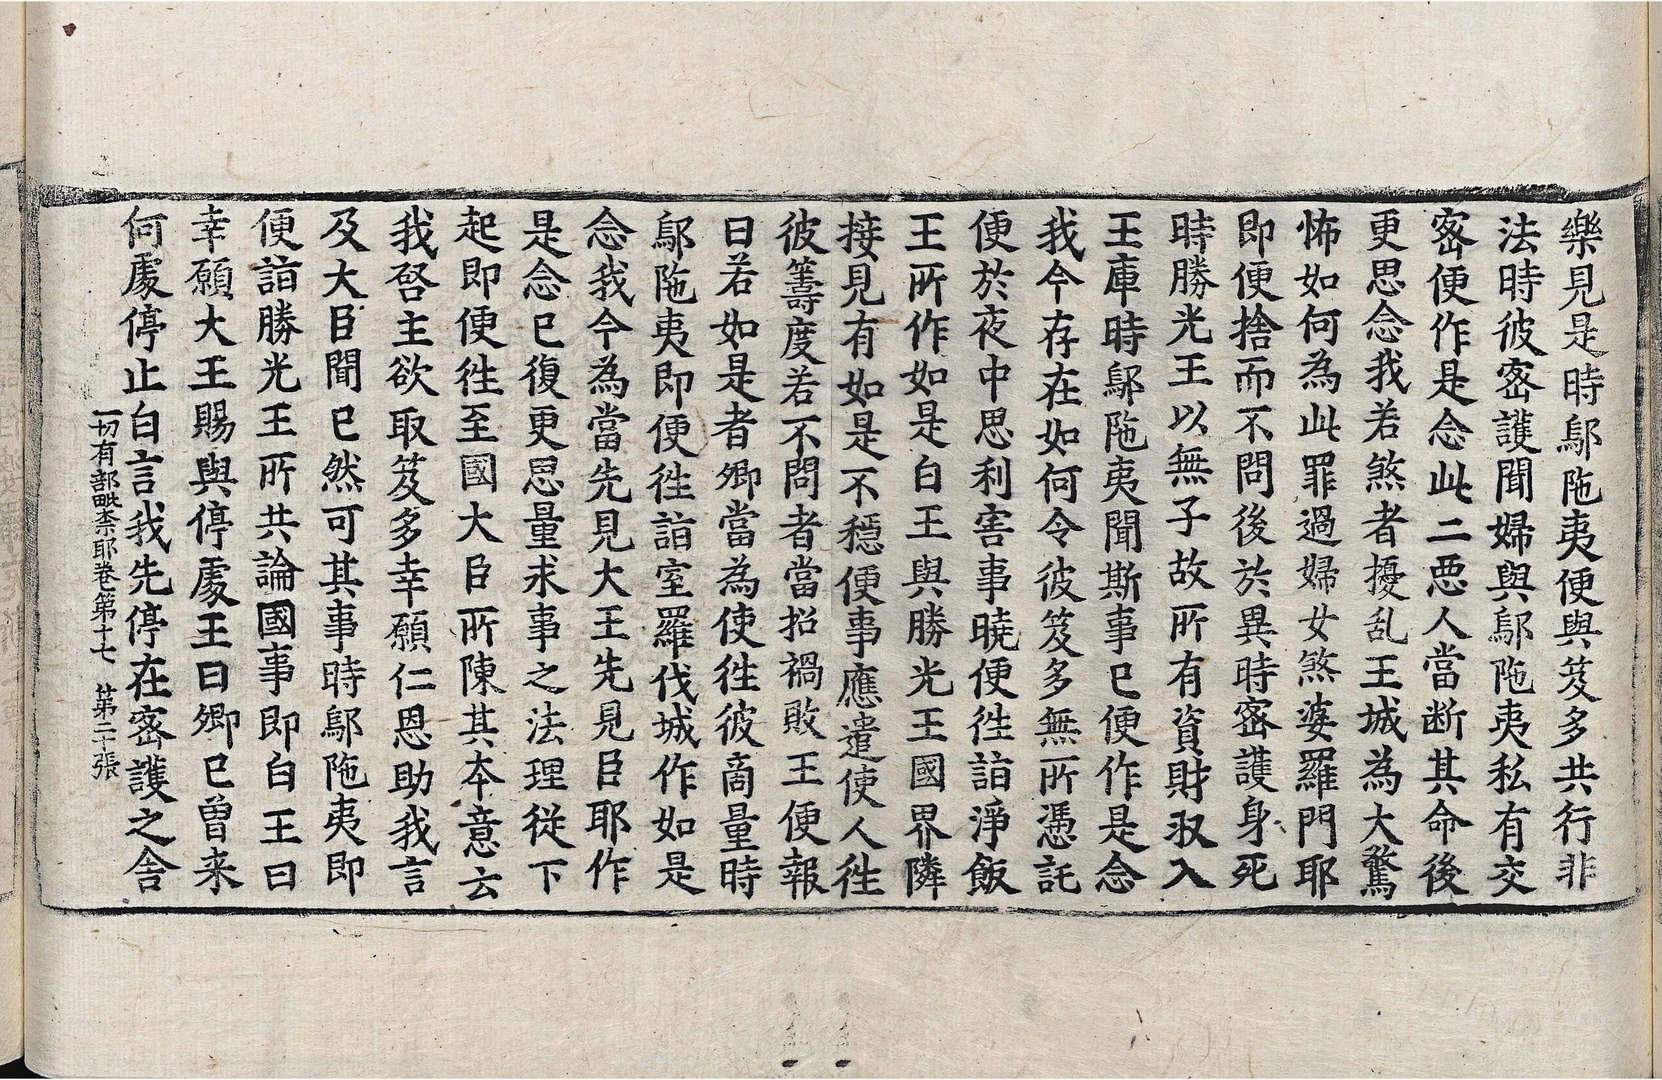 樂見是時鄔陁夷便與笈多共行非
法時彼密護聞婦與鄔陁夷私有交
密便作是念此二惡人當断其命後
更思念我若煞者擾乱王城為大驚
怖如何為此罪過婦女煞婆羅門耶
即便捨而不問後於異時密護身死
時勝光王以無子故所有資財収入
王庫時鄔陁夷聞斯事已便作是念
我今存在如何令彼笈多無所憑託
便於夜中思利害事曉便徃詣淨飯
王所作如是白王與勝光王國界隣
接見有如是不穩便事應遣使人徃
彼籌度若不問者當招禍敗王便報
曰若如是者卿當為使徃彼商量時
鄔陁夷即便徃詣室羅伐城作如是
念我今為當先見大王先見臣耶作
是念已復更思量求事之法理從下
起即便徃至國大臣所陳其夲意云
我啓主欲取笈多幸願仁恩助我言
及大臣聞已然可其事時鄔陁夷即
便詣勝光王所共論國事即白王曰
幸願大王賜與停處王曰卿已曽来
何處停止白言我先停在密護之舍
一切有部毗柰耶卷第十七 第二十張